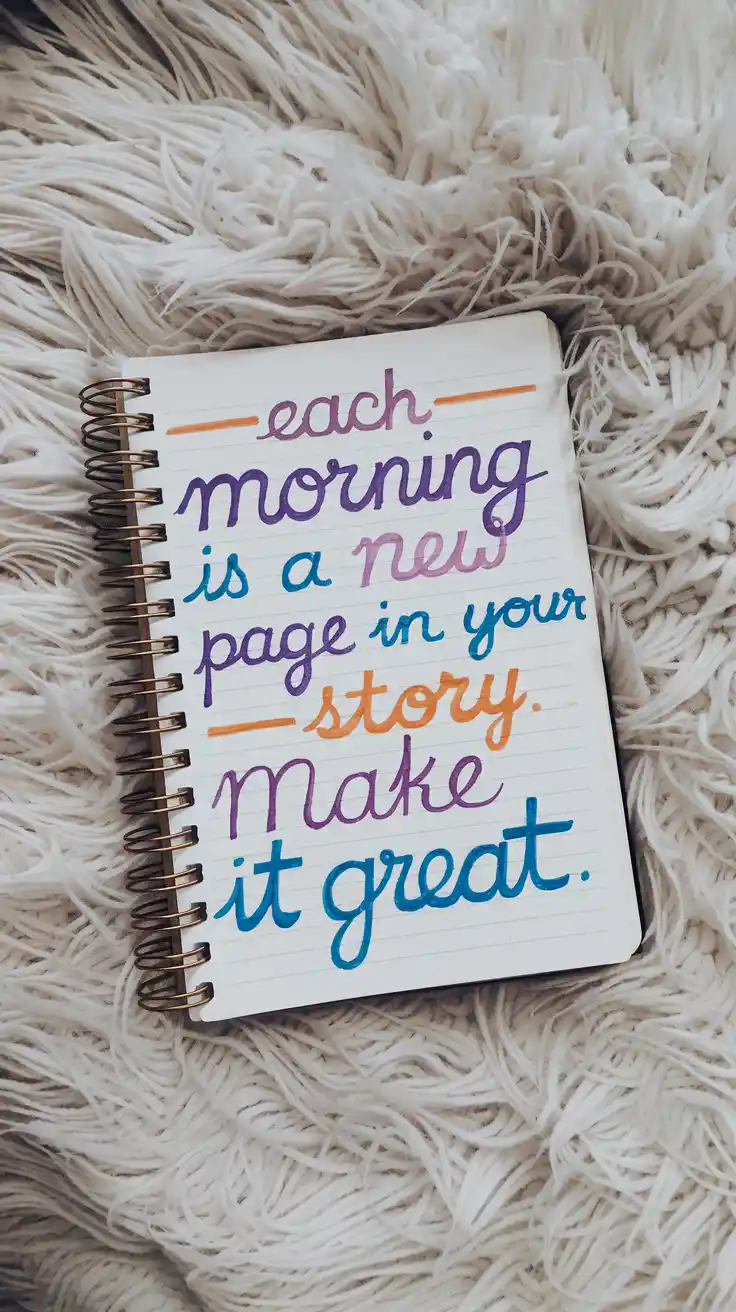 each
morning
is a new
page in your
story.
Make
it great.